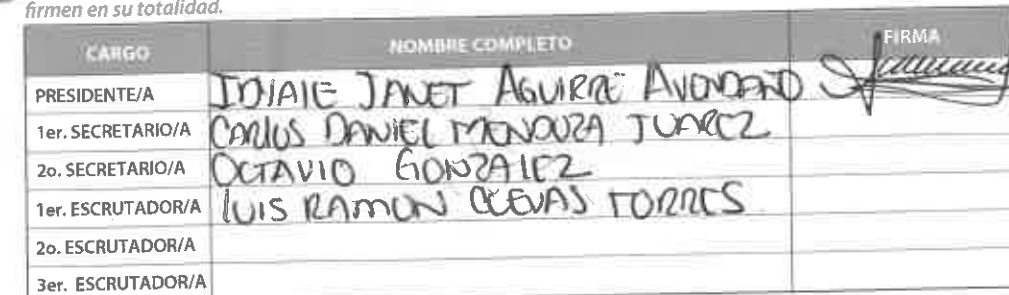 firmen en su totalidad.
CARGO NOMBRE COMPLETO FIRMA
PRESIDENTE/A JANET AGUIRRE AVENDAÑO
1er. SECRETARIO/A CARLOS DANIEL MENDOZA JUAREZ
2o. SECRETARIO/A OCTAVIO GONZALEZ
1er. ESCRUTADOR/A LUIS RAMON CUEVAS TORRES
2o. ESCRUTADOR/A
3er. ESCRUTADOR/A